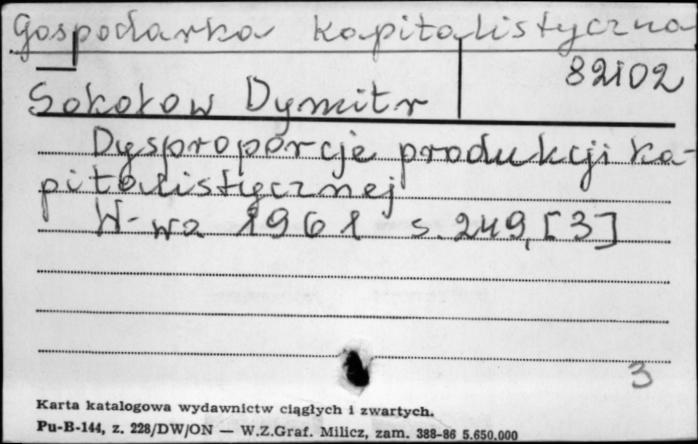 Gospodarka kapitalistyczna
82102
Sokołow Dymitr
Dysproporcje produkcji ka-
pitalistycznej
W-wa 1961 s. 249, [3]
3
Karta katalogowa wydawnictw ciągłych i zwartych.
Pu-B-144, z. 228/DW/ON — W.Z.Graf. Milicz, zam. 388-86 5.650.000